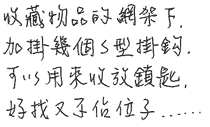 收藏物品的網架下,
加掛幾個S型掛鈎.
可以用來收放鎖匙,
好找又不佔位子......